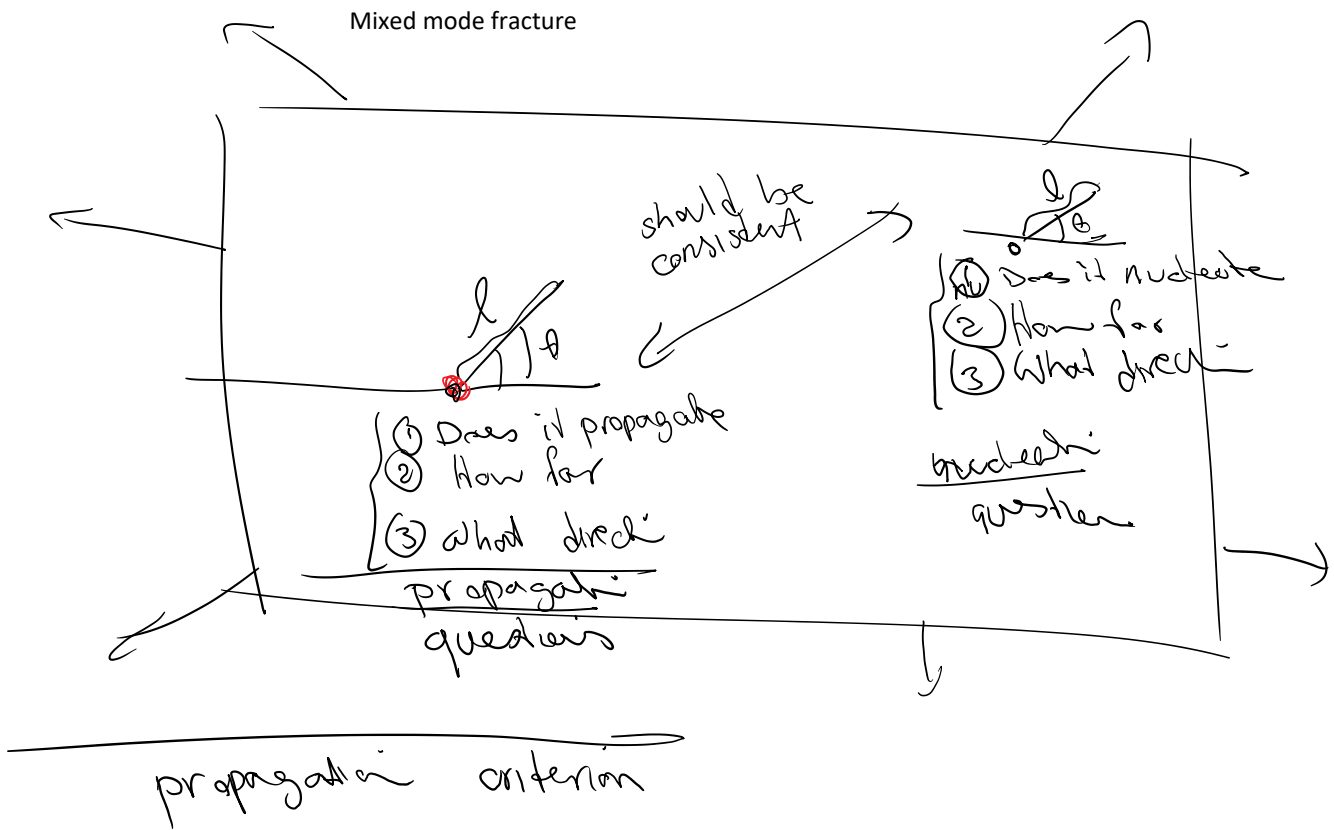 Mixed mode fracture
should be
consistent
l
θ
① Does it propagate
② How far
③ What directi
propagati
questions
l
θ
① Does it nucleate
② How far
③ What directi
nucleati
question
propagation criterion